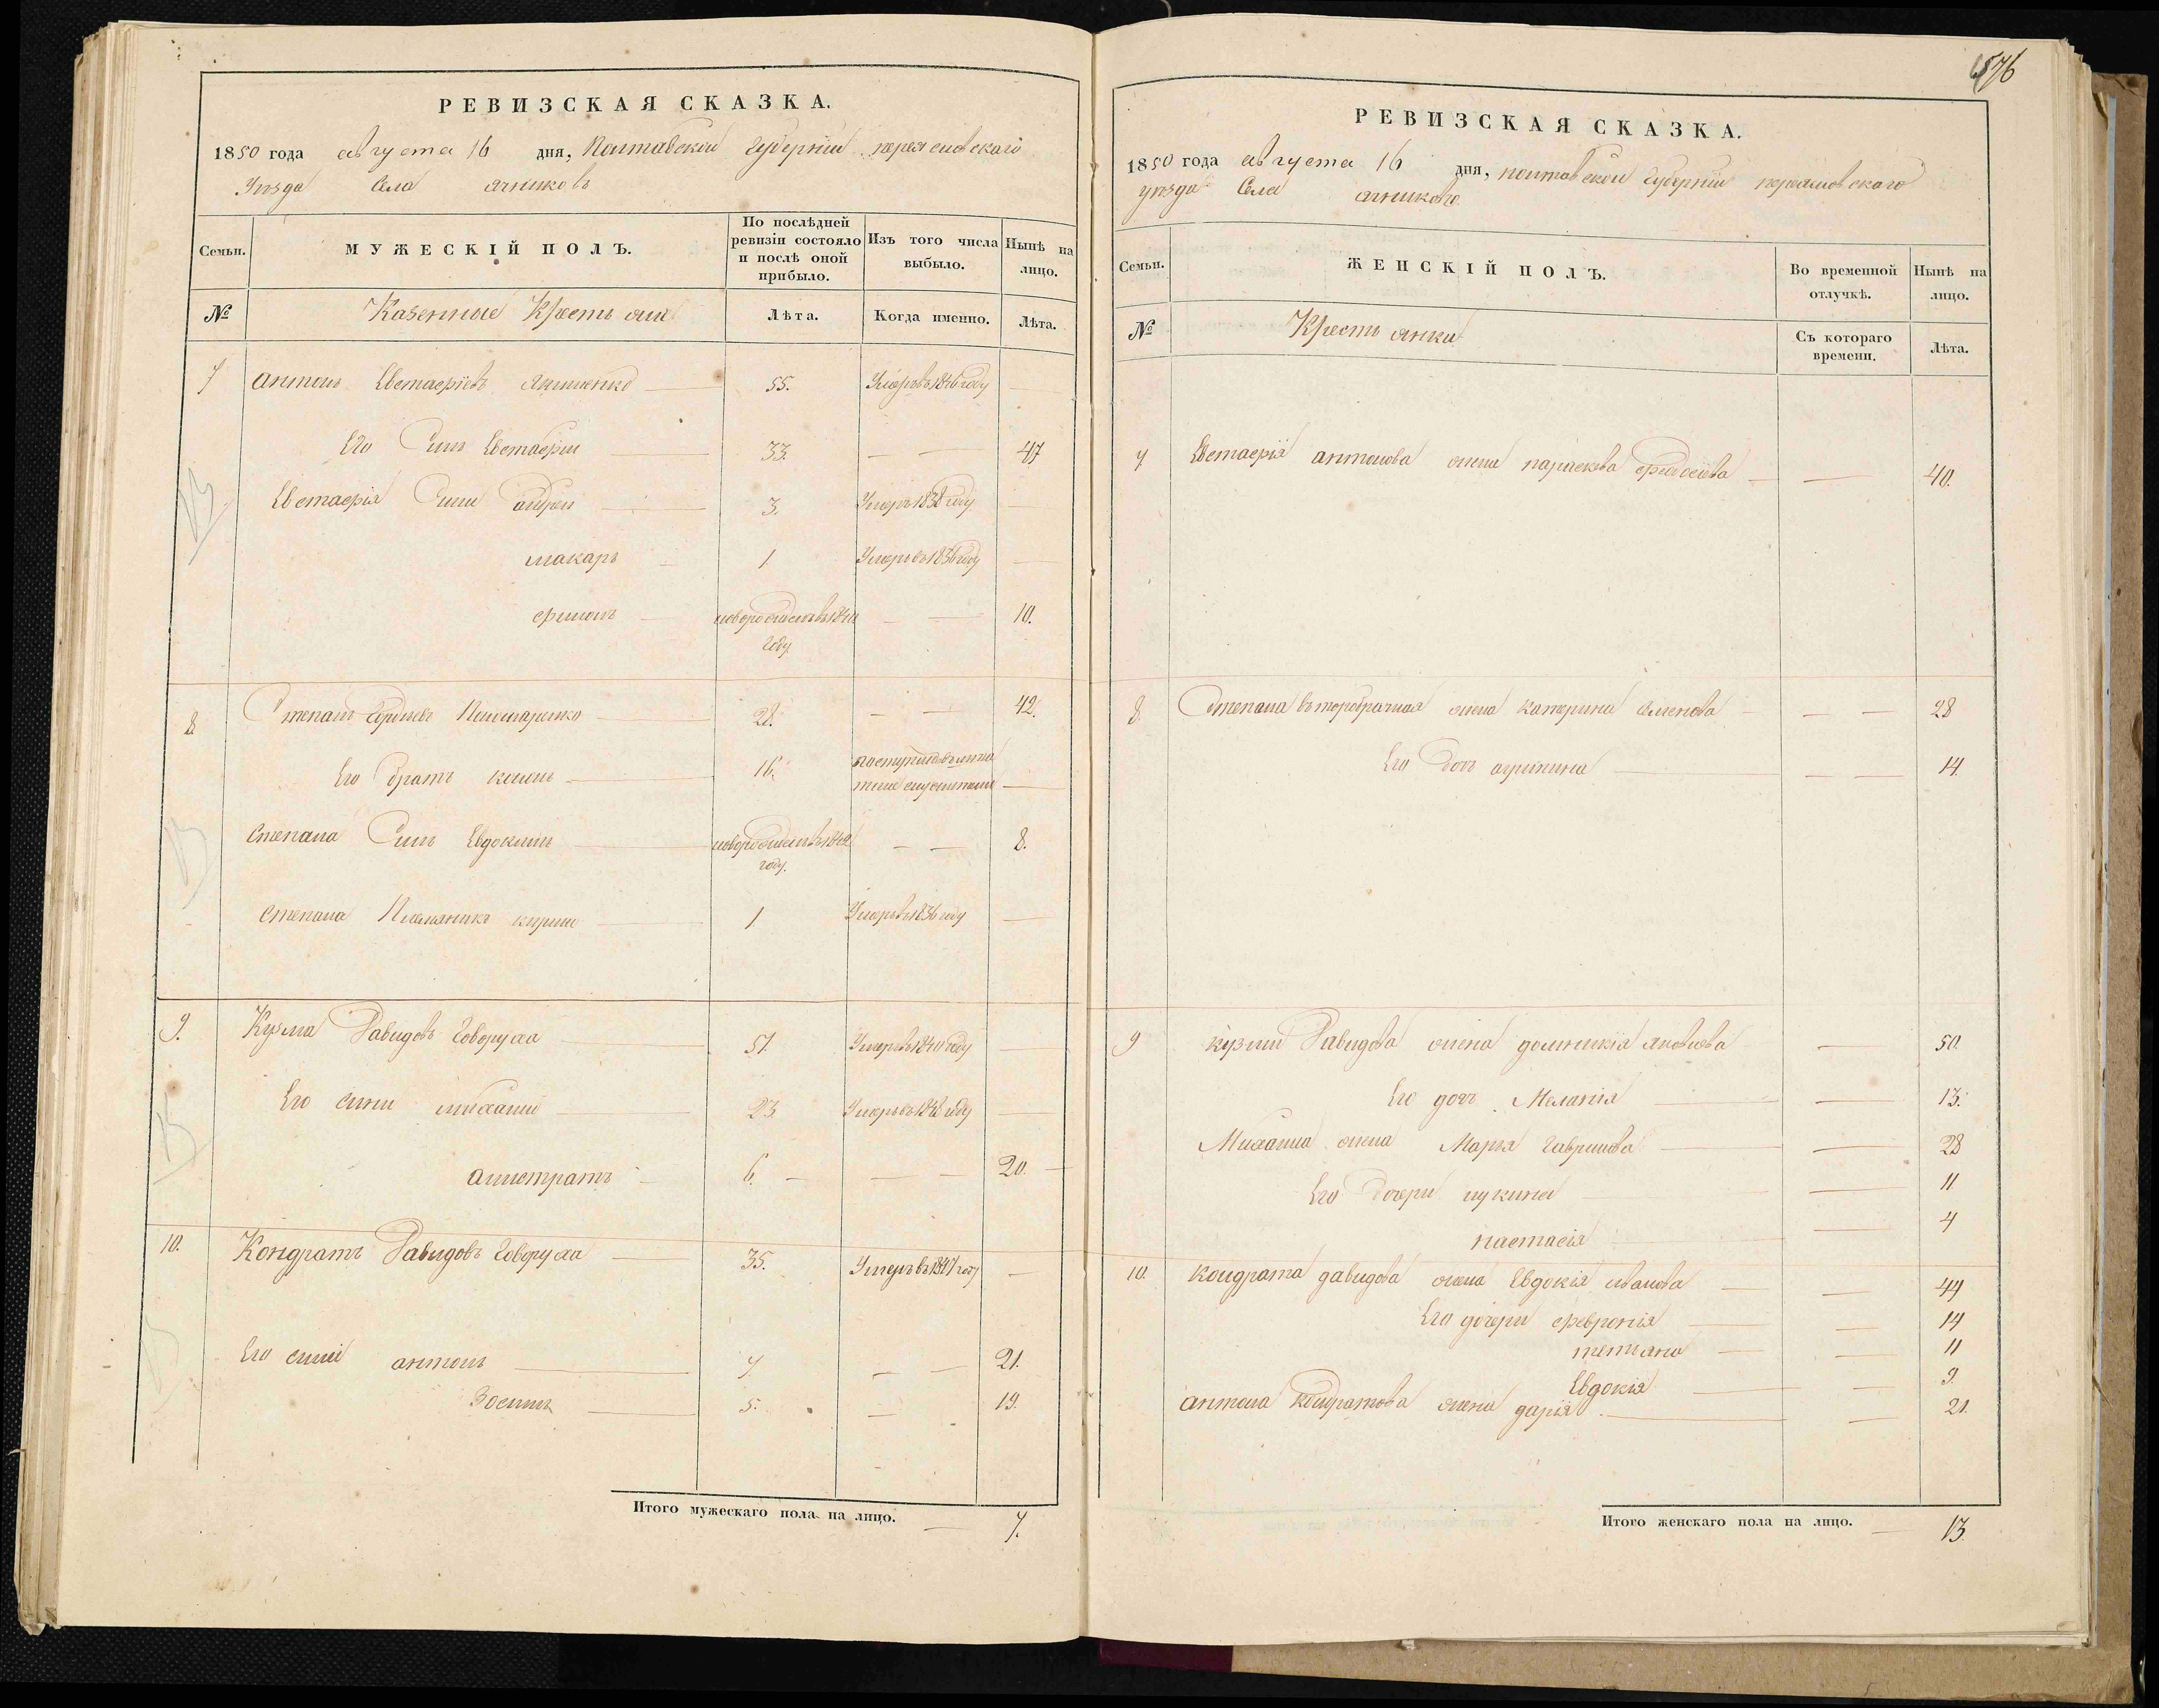 РЕВИЗСКАЯ СКАЗКА.
1850 года августа 16 дня, Полтавской Губернии переяславского
Уезда Села
Семьи.
МУЖЕСКІЙ ПОЛЪ.
По послѣдней ревизіи состояло и послѣ оной прибыло.
Изъ того числа выбыло.
Нынѣ на лицо.
№
Казенные Крестьяни
Лѣта.
Когда именно.
Лѣта.
7 антонъ Евстафіевъ 55. Умеръ въ 1846 году
Его Сынъ Евстафiи 33. 47
Евстафія Сини андреи 3. Умеръ 1838 году
макаръ 1 Умеръ въ 1836 году
филипъ новорожденъ въ 1840 10.
году
8 Степанъ Пономаренко 28. 42.
Его братъ 16.
Степана Синъ Евдокимъ новорожденъ въ 1842 8.
году.
степана Племяникъ кирило 1 Умеръ въ 1836 году
9. Кузма Давидовъ Говоруха 51. Умеръ въ 1840 году
Его сини михаило 23 Умеръ въ 1848 году
алистратъ 6. 20.
10. Кондратъ Давидовъ Говоруха 35. Умеръ въ 1847 году
Его сини антонъ 7 21.
Зосимъ 5. 19.
Итого мужескаго пола на лицо. 7.
576
РЕВИЗСКАЯ СКАЗКА.
1850 года августа 16 дня, полтавской Губернии переяславского
уезда Села
Семьи.
ЖЕНСКІЙ ПОЛЪ.
Во временной отлучкѣ.
Нынѣ на лицо.
№
Крестьянки
Съ котораго времени.
Лѣта.
7 Евстафія антонова жена параскева федосіева 40.
8. Степана второбрачная жена катерина семенова 28
Его дочь агрипина 14.
9 кузми Давидова жена домникія яковлева 50.
Его дочь Меланія 13.
Михаила жена Марья гаврилова 28
Его Дочери лукина 11
настасія 4
10. кондрата давидова жена Евдокія иванова 44
Его дочери февронія 14
11
Евдокія 9.
антона кондратова жена дарія 21.
Итого женскаго пола на лицо. 13.